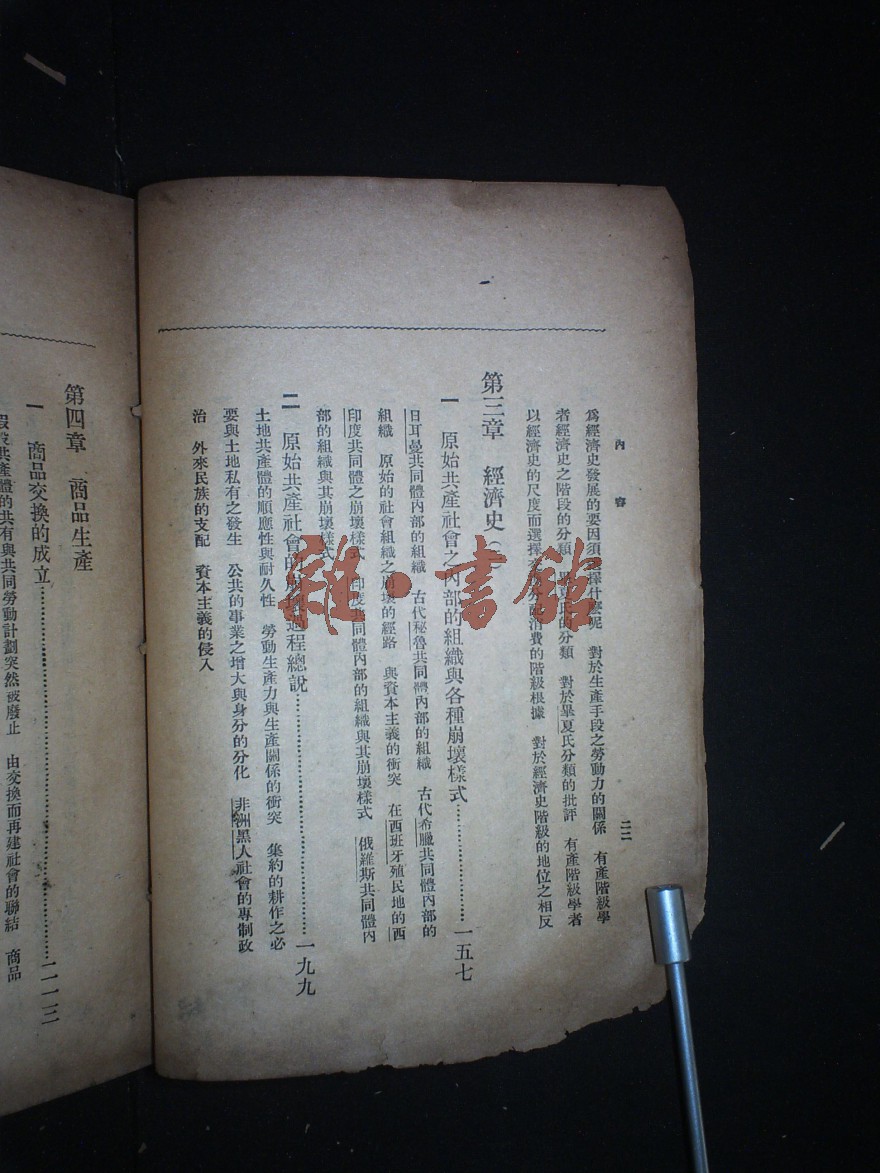 內容
二
為經濟史發展的要因須 擇什麼呢 對於生產手段之勞動力的關係 有產階級學
者經濟史之階段的分類 畢夏氏的分類 對於畢夏氏分類的批評 有產階級學者
以經濟史的尺度而選擇 消費的階級根據 對於經濟史階級的地位之相反
第三章 經濟史
一 原始共產社會之內部的組織與各種崩壞樣式……一五七
日耳曼共同體內部的組織 古代秘魯共同體內部的組織 古代希臘共同體內部的
組織 原始的社會組織之崩壞的經路 與資本主義的衝突 在西班牙殖民地的西
印度共同體之崩壞樣式 印度共同體內部的組織與其崩壞樣式 俄羅斯共同體內
部的組織與其崩壞樣式
二 原始共產社會的崩壞過程總說……一九九
土地共產體的順應性與耐久性 勞動生產力與生產關係的衝突 集約的耕作之必
要與土地私有之發生 公共的事業之增大與身分的分化 非洲黑人社會的專制政
治 外來民族的支配 資本主義的侵入
第四章 商品生產
一 商品交換的成立……二一三
假設共產體的共有與共同勞動計劃突然被廢止 由交換而再建社會的聯結 商品
雜·書館